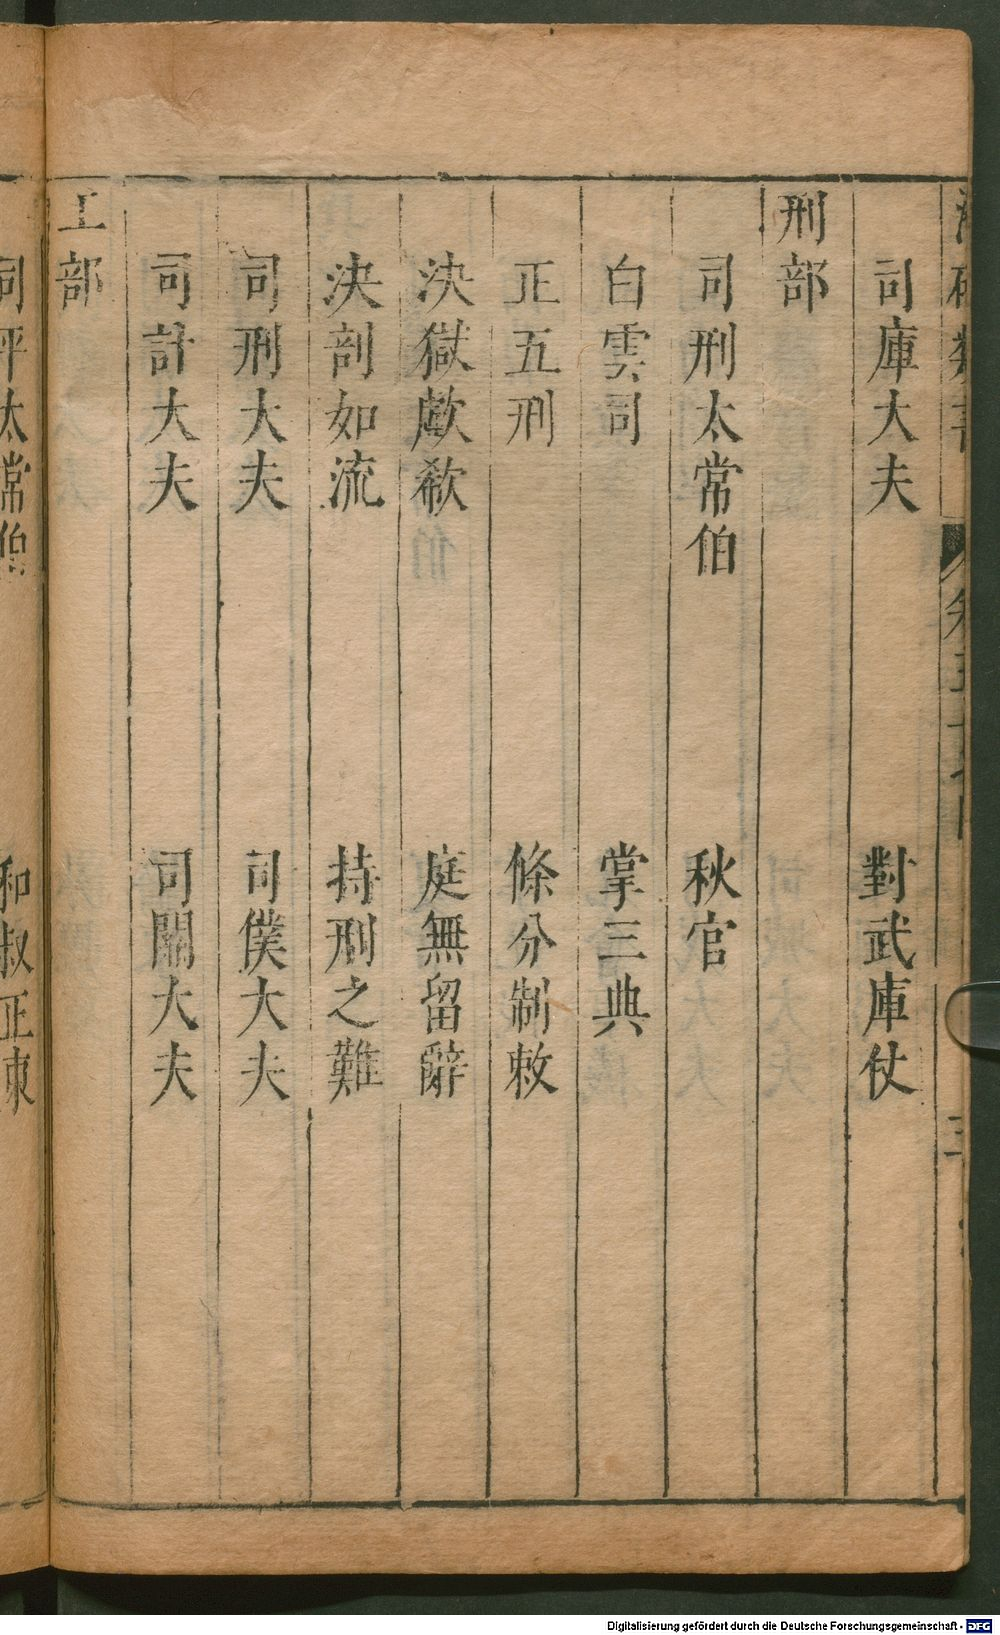 司庫大夫　對武庫仗
刑部
司刑太常伯　秋官
白雲司　掌三典
正五刑　條分制敕
決獄歔欷　庭無留辭
決剖如流　持刑之難
司刑大夫　司僕大夫
司計大夫　司關大夫
工部
司平太常伯　和叔正東
三
Digitalisierung gefördert durch die Deutsche Forschungsgemeinschaft - DFG